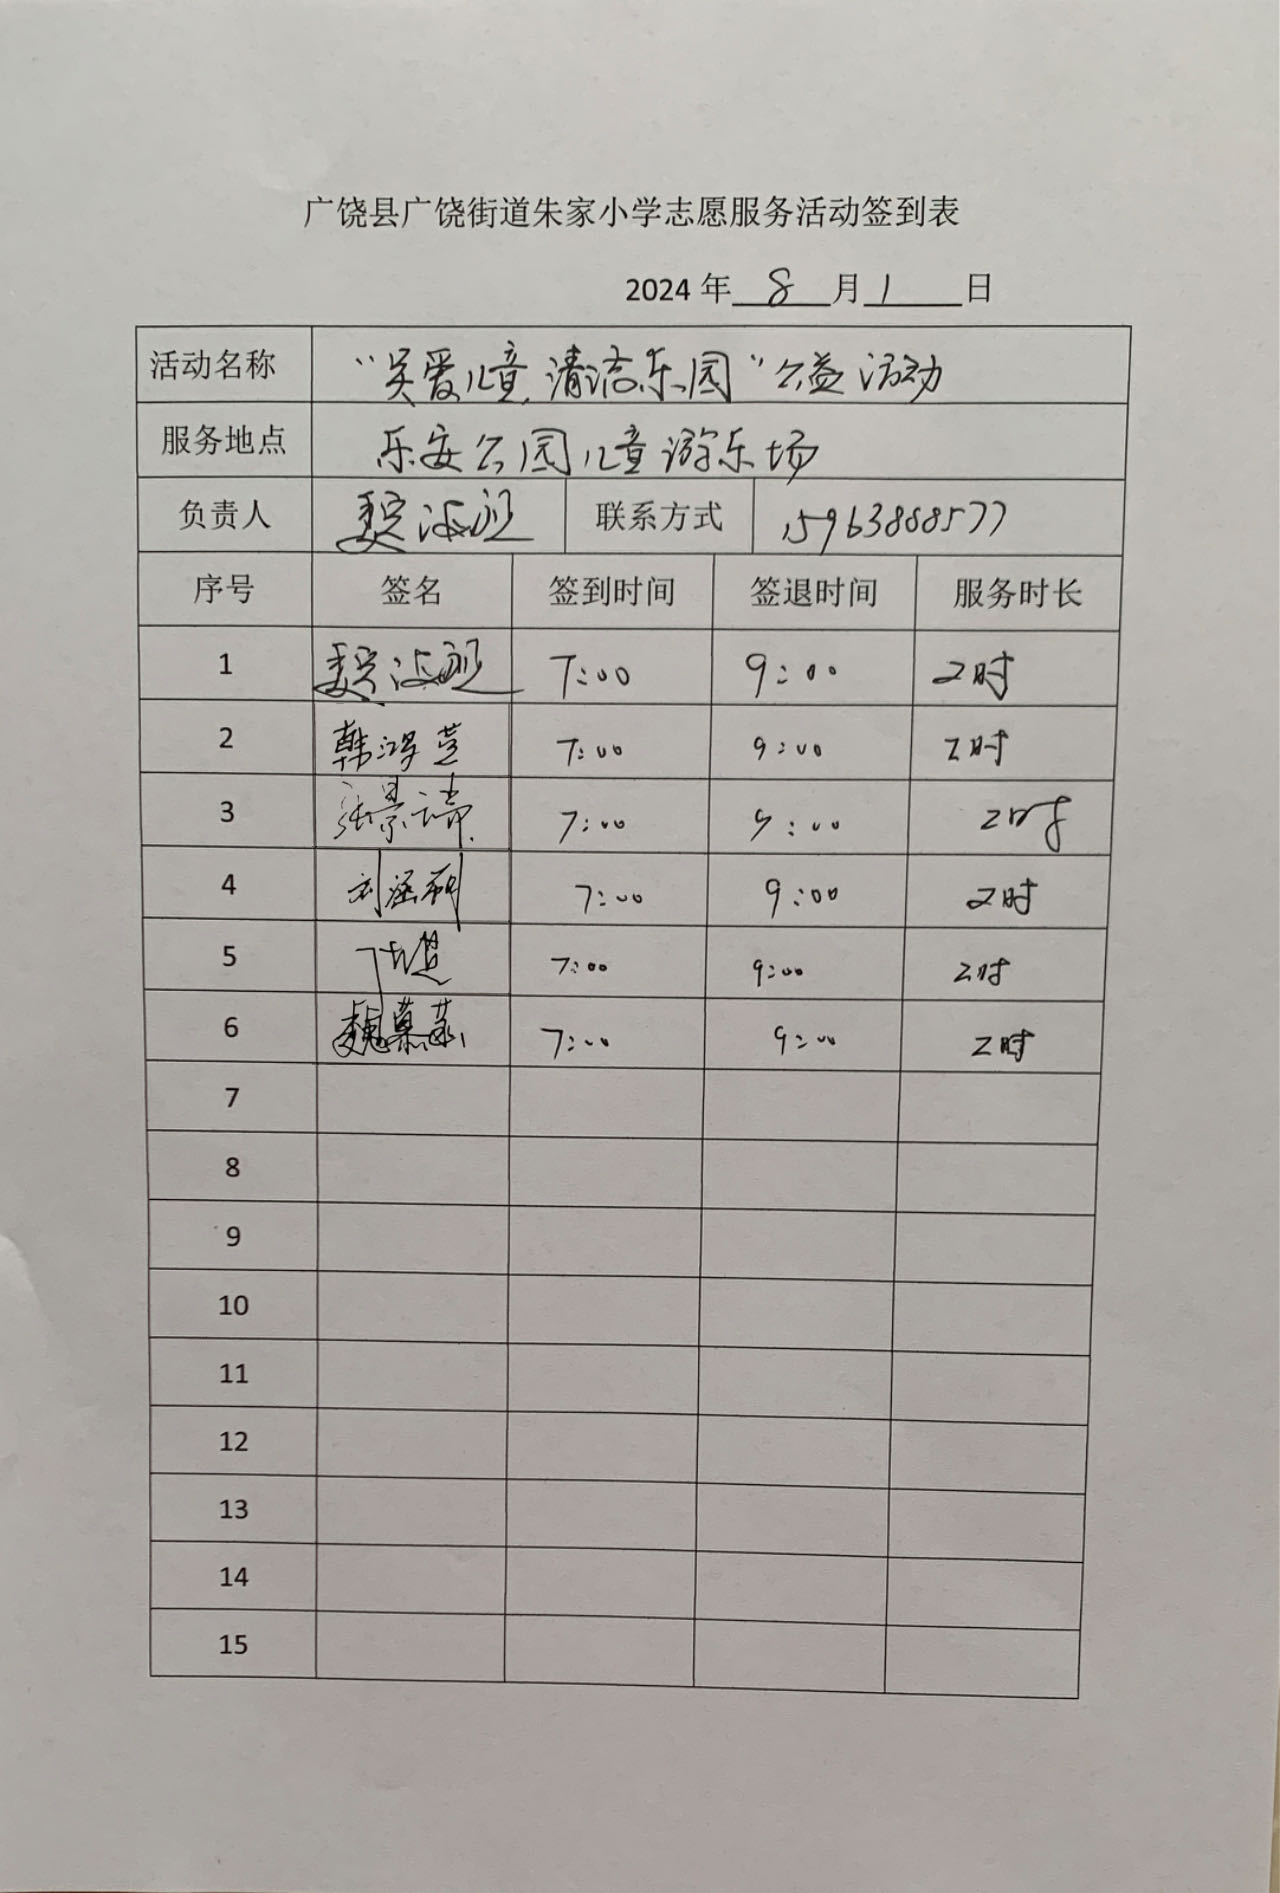 广饶县广饶街道朱家小学志愿服务活动签到表
2024 年 8 月 1 日
活动名称 “关爱儿童,清洁乐园”公益活动
服务地点 乐安公园儿童游乐场
负责人 联系方式 15963888577
序号 签名 签到时间 签退时间 服务时长
1 7:00 9:00 2时
2 韩鸿萱 7:00 9:00 2时
3 张景 7:00 9:00 2时
4 刘 7:00 9:00 2时
5 7:00 9:00 2时
6 魏慕 7:00 9:00 2时
7
8
9
10
11
12
13
14
15